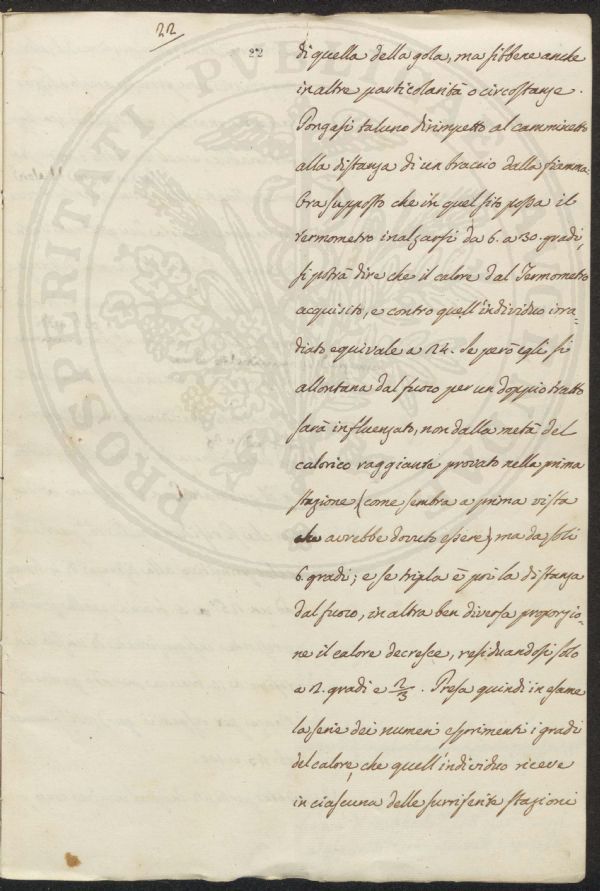 22
22
di quella della gola, ma sibbene anche
in altre particolarità o circostanze.
Pongasi taluno dirimpetto al camminetto
alla distanza di un braccio dalla fiamma.
Ora supposto che in quel sito possa il
termometro inalzarsi da 6. a 30. gradi,
si potrà dire che il calore dal Termometro
acquisito, e contro quell'individuo irra=
diato equivale a 24. Se però egli si
allontana dal fuoco per un doppio tratto
sarà influenzato, non dalla metà del
calorico raggiante provato nella prima
stazione (come sembra a prima vista
che avrebbe dovuto essere) ma da soli
6. gradi; e se tripla è poi la distanza
dal fuoco, in altra ben diversa proporzio=
ne il calore decresce, residuandosi solo
a 2. gradi e 2/3. Presa quindi in esame
la serie dei numeri esprimenti i gradi
del calore, che quell'individuo riceve
in ciascuna delle surriferite stazioni
PROSPERITATI PVBLICAE